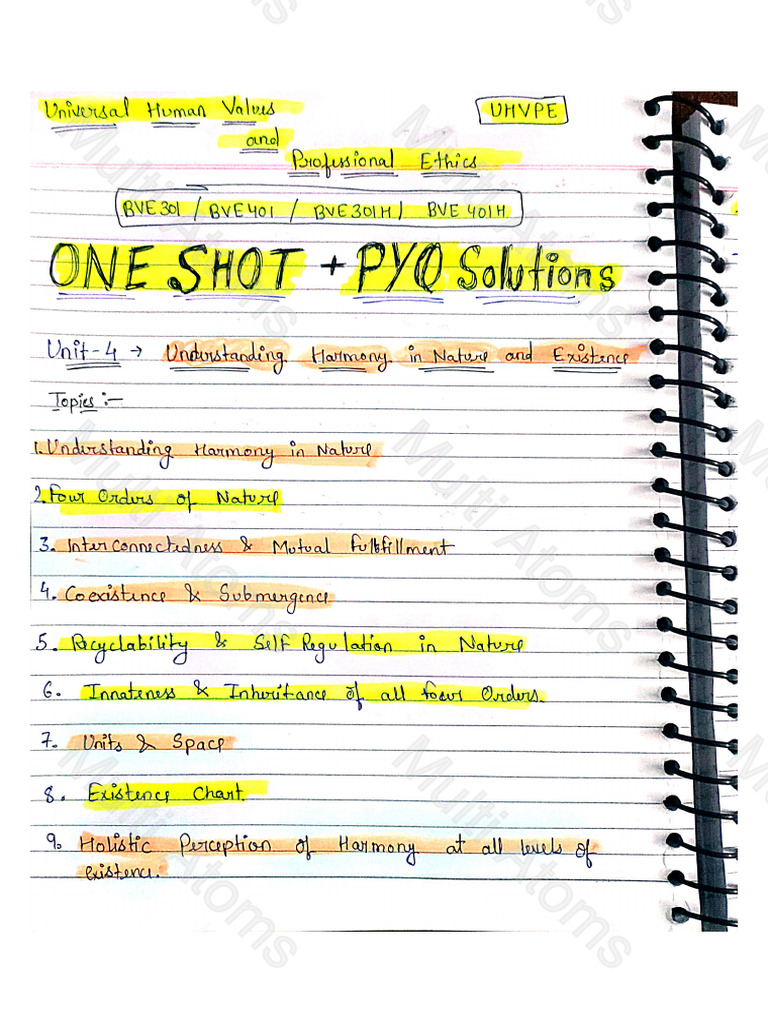 Universal Human Values
UHVPE
and
Professional Ethics
BVE301 / BVE401 / BVE301H / BVE 401H
ONE SHOT + PYQ Solutions
Unit-4 → Understanding Harmony in Nature and Existence
Topics :-
1. Understanding Harmony in Nature
2. Four Orders of Nature
3. Interconnectedness & Mutual Fulfillment
4. Coexistence & Submergence
5. Recyclability & Self Regulation in Nature
6. Innateness & Inheritance of all four Orders.
7. Units & Space
8. Existence Chart.
9. Holistic Perception of Harmony at all levels of
existence.
Multi Atoms